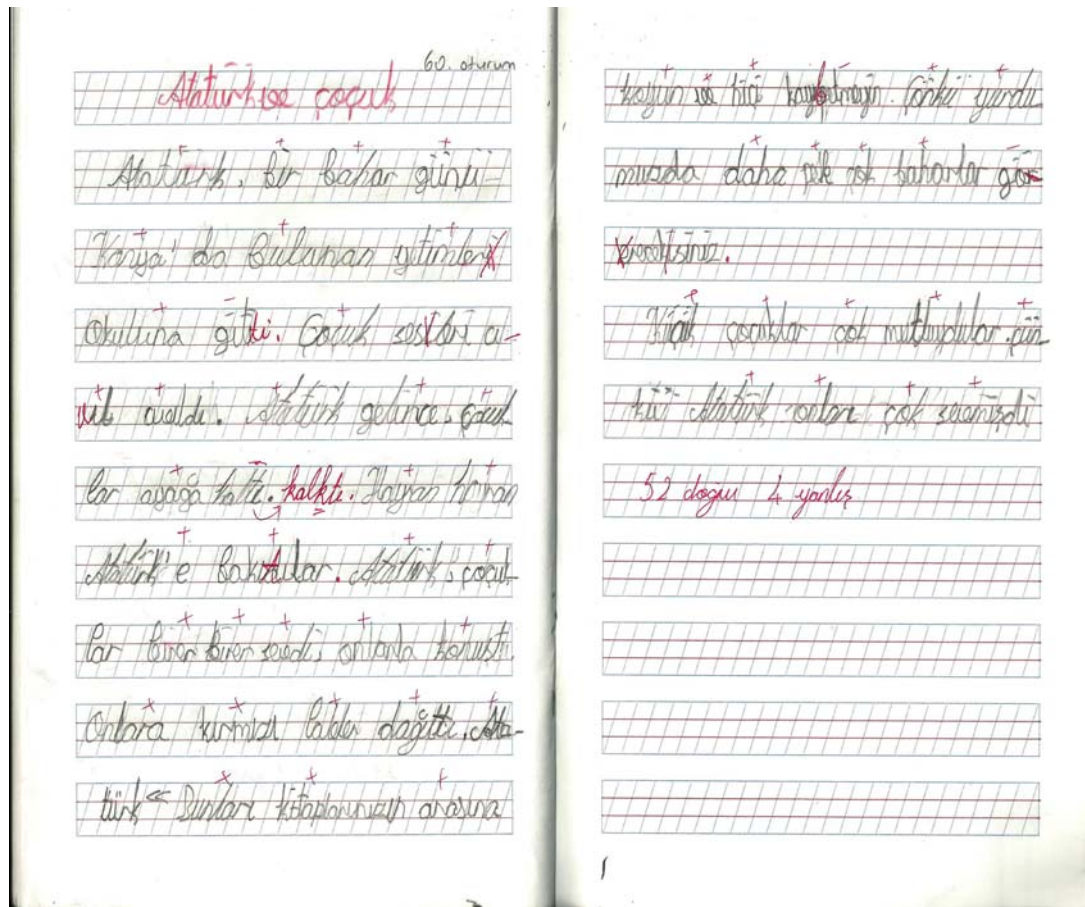 60. oturum
Atatürk ve çoçuk
Atatürk, bir bahar günü
Konya'da bulunan yitimler
Okuluna gitti. Çoçuk sesleri a-
vıldı. Atatürk gelince, çoçuk
lar ayağa kalktı. Hayran hayran
Atatürk'e baktılar. Atatürk, çoçuk
lar birer birer sevdi, onlarla konuştı.
Onlara kırmızı laleler dağıttı. Ata-
türk << Bunları kitaplarınızın arasına
koyun ve hiç kaybetmeyin. Çünkü yurdu
muzda daha pek çok baharlar gör-
eceksiniz.
Küçük çoçuklar çok mutluydular. çün-
kü Atatürk onları çok sevmişdi
52 doğru 4 yanlış